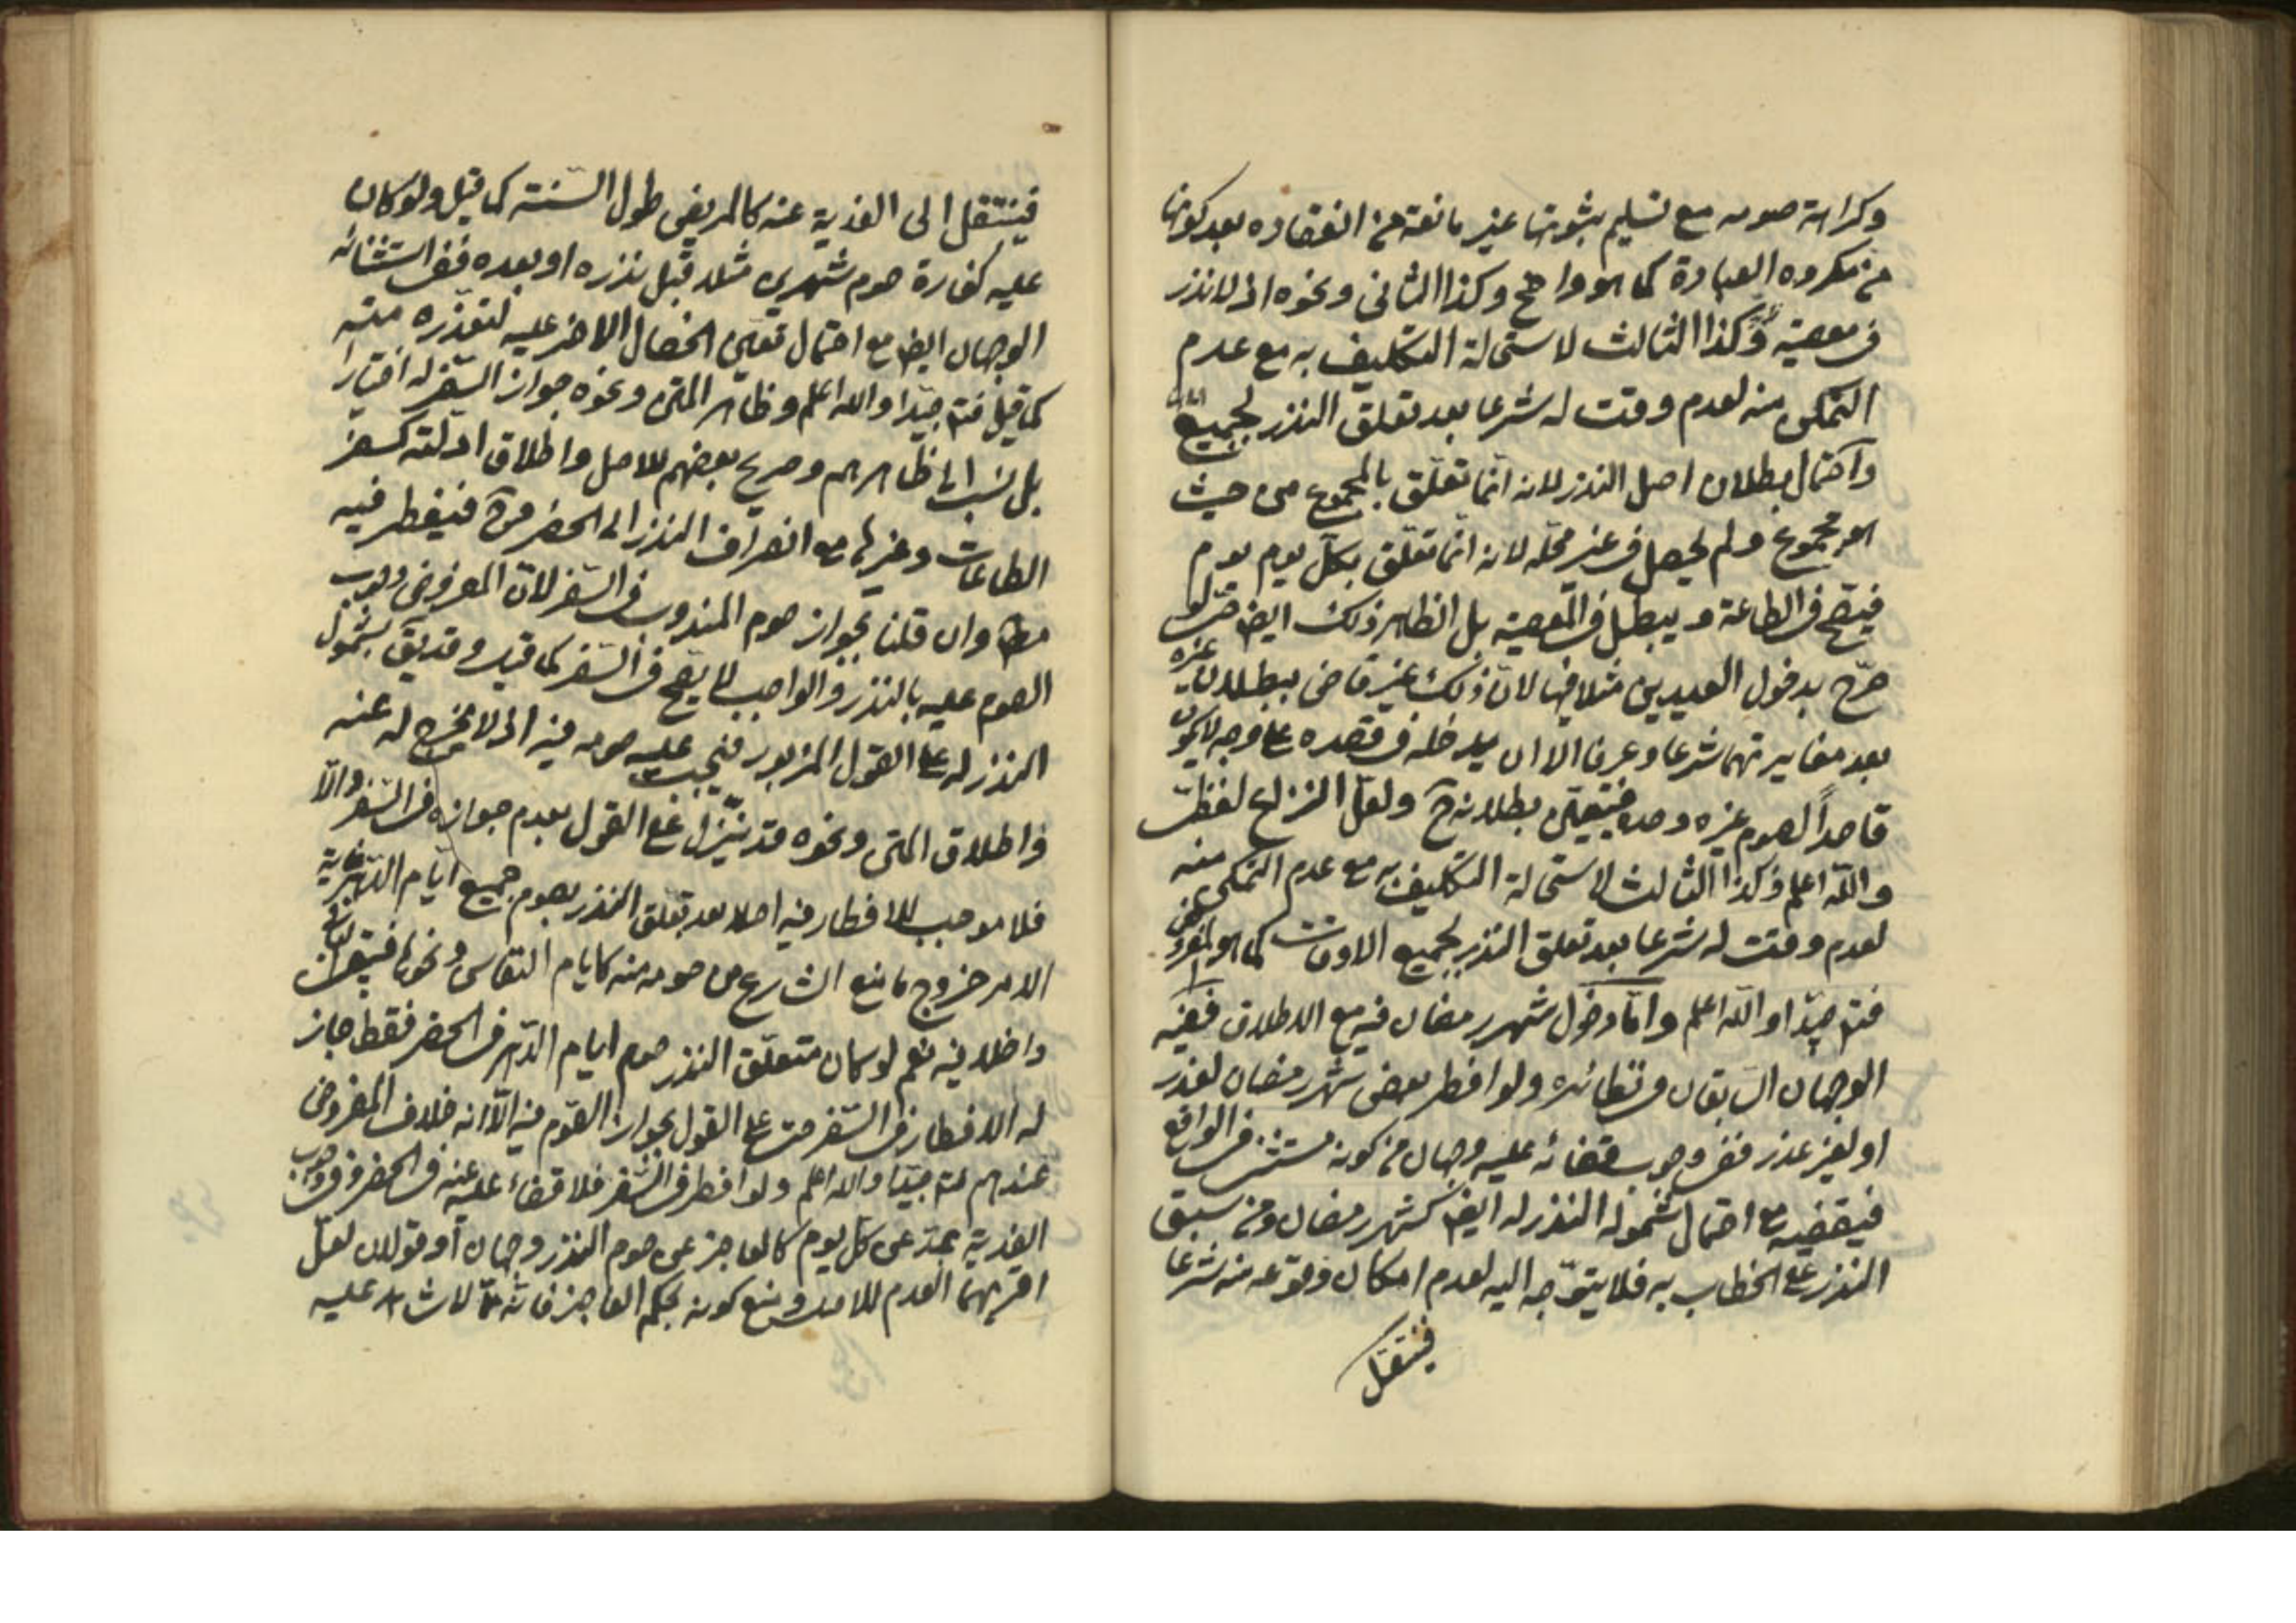 وكراهة صومه مع تسليم ثبوتها غير مانعة من انعقاده بعد كونها
من مكروه العبادة كما هو واضح وكذا الثانى ونحوه اذ لا نذر
فى معصية وكذا الثالث لاستحالة التكليف به مع عدم
التمكن منه لعدم وقت له شرعا بعد تعلق النذر بجميع
واحتمال بطلان اصل النذر لانه انما تعلق بالمجموع من حيث
هو مجموع ولم يحصل فى غير محله لانه انما تعلق بكل يوم يوم
فيصح فى الطاعة ويبطل فى المعصية بل الظاهر ذلك ايض حتى لو
صرح بدخول العيدين مثلا فيها لان ذلك غير قاض ببطلان غيره
بعد مغايرتهما شرعا وعرفا الا ان يدخله فى قصده على وجه لا يكون
قاصداً لصوم غيره وحده فيتعين بطلانه ح ولعل النزاع لفظى
والله اعلم وكذا الثالث لاستحالة التكليف به مع عدم التمكن منه
لعدم وقت له شرعا بعد تعلق النذر بجميع الاوقات كما هو المفروض
فتم جيدا والله اعلم واما دخول شهر رمضان فيه مع الاطلاق ففيه
الوجهان السابقان فى نظائره ولو افطر بعض شهر رمضان لعذر
او لغير عذر ففى وجوب قضائه عليه وجهان من كونه مستثنى فى الواقع
فيقضيه مع احتمال شموله النذر له ايض كشهر رمضان ومن سبق
النذر على الخطاب به فلا يتوجه اليه لعدم امكان وقوعه منه شرعا
فينتقل
فينتقل الى الفدية عنه كالمريض طول السنة كما قيل ولو كان
عليه كفارة صوم شهرين مثلا قبل نذره او بعده ففى استثنائه
الوجهان ايض مع احتمال تعين الخصال الاخر عليه لتعذره منه
كما قيل فتم جيدا والله اعلم وظاهر المتن ونحوه جواز السفر له اختيارا
بل نسب الى ظاهرهم وصريح بعضهم للاصل واطلاق ادلته كسفر
الطاعات وغيرها مع انصراف النذر الى الحضر فيفطر فيه
مط وان قلنا بجواز صوم المندوب فى السفر لان المفروض وجوب
الصوم عليه بالنذر والواجب لا يصح فى السفر كما قيل وقد يق بشمول
النذر له على القول المزبور فيجب عليه صومه فيه اذ لا مخرج له عنه
واطلاق المتن ونحوه قد ينزل على القول بعدم جوازه فى السفر والا
فلا موجب للافطار فيه اصلا بعد تعلق النذر بصوم جميع ايام الدهر غاية
الامر خروج ما منع الشارع من صومه منه كايام النفاس ونحوها فيبقى الباقى
داخلا فيه نعم لو كان متعلق النذر صوم ايام الدهر فى الحضر فقط جاز
له الافطار فى السفر حتى على القول بجواز الصوم فيه الا انه خلاف المفروض
عندهم فتم جيدا والله اعلم ولو افطر فى السفر فلا قضاء عليه عنه فى الحضر وفى وجوب
الفدية بمد عن كل يوم كالعاجز عن صوم النذر وجهان او قولان لعل
اقربهما العدم للاصل ومنع كونه بحكم العاجز